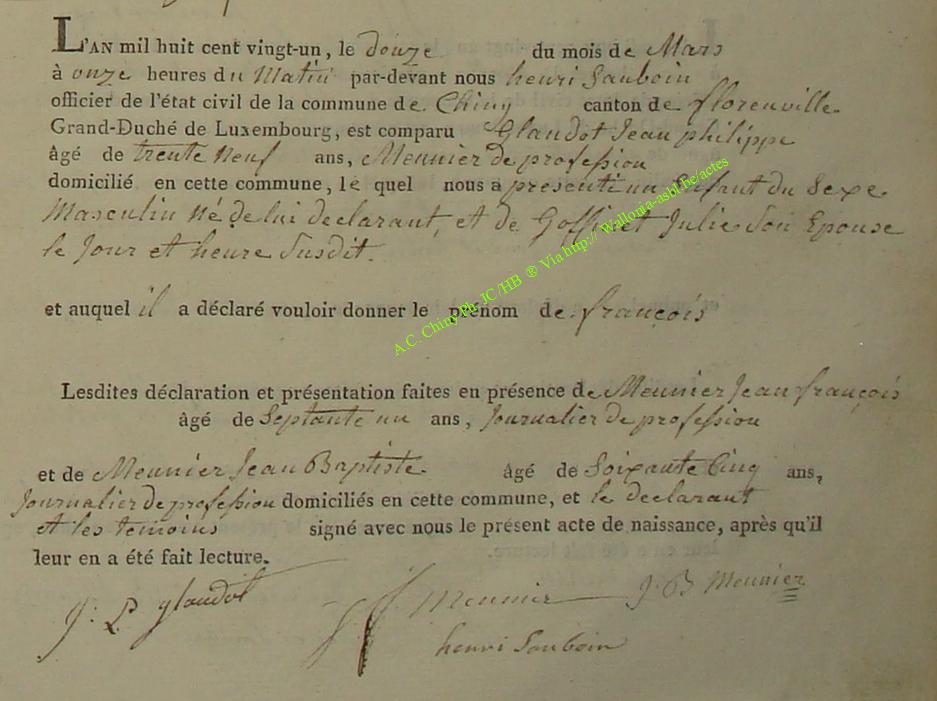 L'AN mil huit cent vingt-un, le douze du mois de Mars
à onze heures du Matin par-devant nous henri Sauboin
officier de l'état civil de la commune de Chiny canton de florenville
Grand-Duché de Luxembourg, est comparu Glaudot Jean philippe
âgé de trente Neuf ans, Meunier de profession
domicilié en cette commune, le quel nous a presenté un Enfant du Sexe
Masculin Né de lui declarant, et de Goffinet Julie Son Epouse
le Jour et heure Susdit.
et auquel il a déclaré vouloir donner le prénom de françois
Lesdites déclaration et présentation faites en présence de Meunier Jean françois
âgé de Septante un ans, Journalier de profession
et de Meunier Jean Baptiste âgé de Soixante Cinq ans,
Journalier de profession domiciliés en cette commune, et le declarant
et les temoins signé avec nous le présent acte de naissance, après qu'il
leur en a été fait lecture.
J. P glaudot J f Meunier J. B Meunier
henri Sauboin
A.C. Chiny Ph. JC /HB ® Via http:// Wallonia-asbl.be/actes